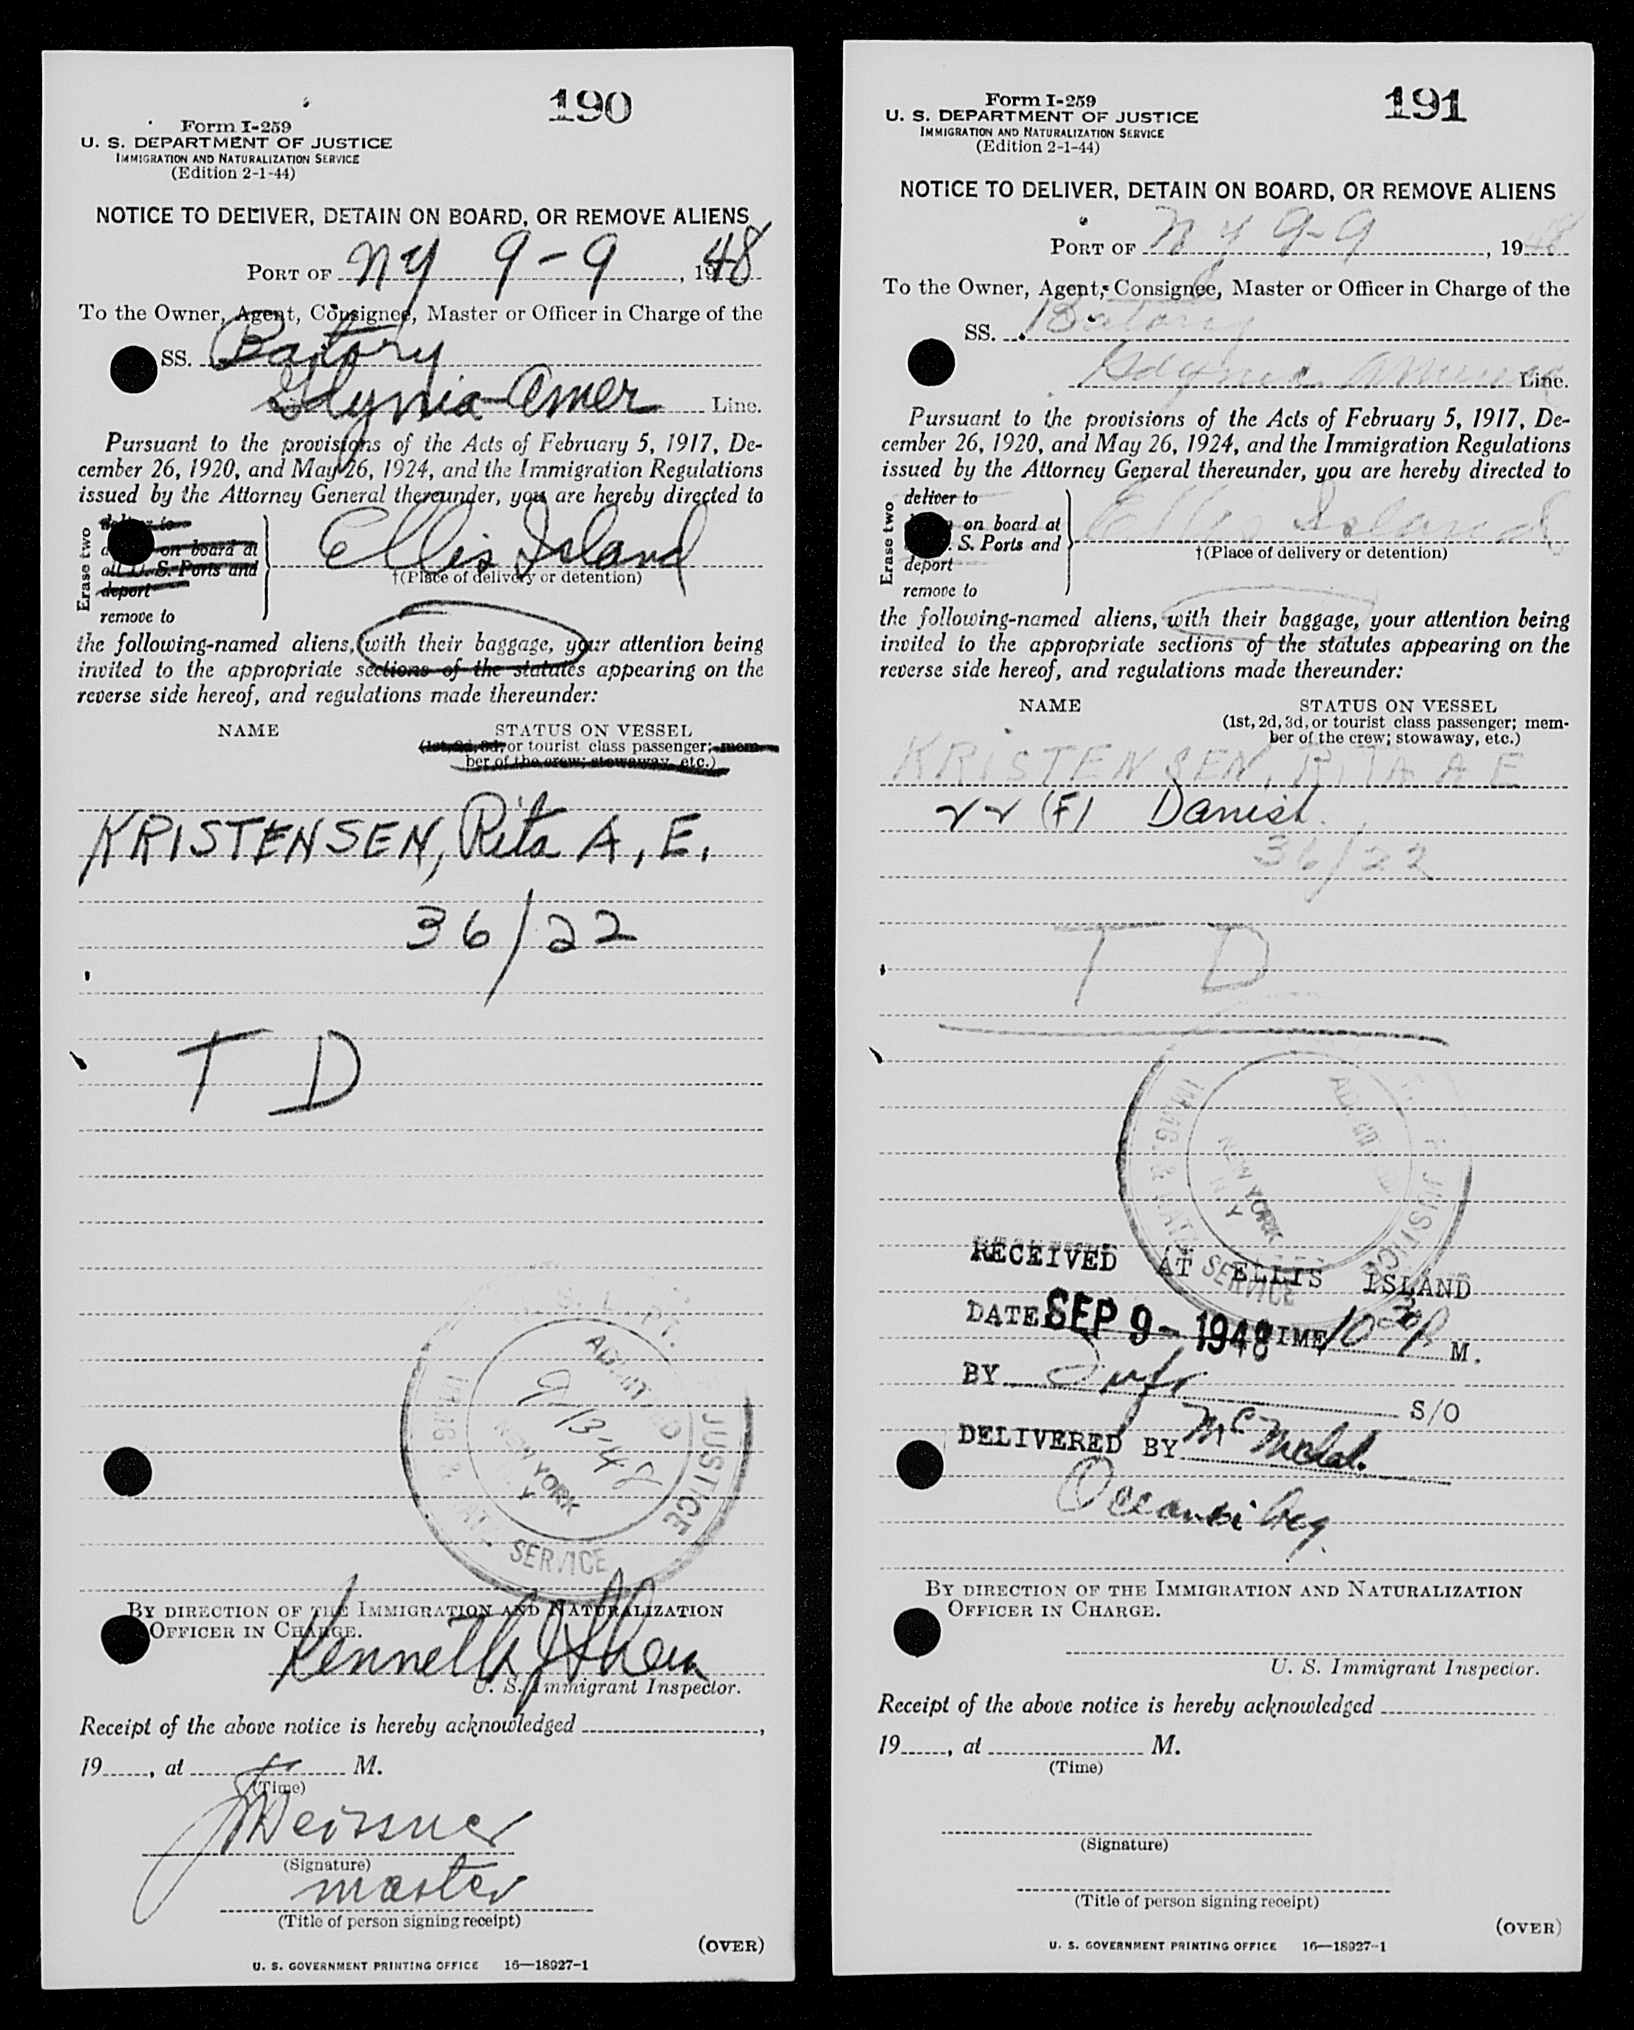 190
Form I-259
U. S. DEPARTMENT OF JUSTICE
IMMIGRATION AND NATURALIZATION SERVICE
(Edition 2-1-44)
NOTICE TO DELIVER, DETAIN ON BOARD, OR REMOVE ALIENS
PORT OF NY 9-9, 1948
To the Owner, Agent, Consignee, Master or Officer in Charge of the
SS. Batory
Gdynia-Amer Line.
Pursuant to the provisions of the Acts of February 5, 1917, De-
cember 26, 1920, and May 26, 1924, and the Immigration Regulations
issued by the Attorney General thereunder, you are hereby directed to
Erase two
deliver to
on board at
all U. S. Ports and
deport
remove to
Ellis Island
†(Place of delivery or detention)
the following-named aliens, with their baggage, your attention being
invited to the appropriate sections of the statutes appearing on the
reverse side hereof, and regulations made thereunder:
NAME STATUS ON VESSEL
(1st, 2d, 3d, or tourist class passenger; mem-
ber of the crew; stowaway, etc.)
KRISTENSEN, Rita A, E.
36/22
T D
ADMITTED
9-13-48
NEW YORK
N Y
JUSTICE
IMMIG. & NAT. SERVICE
BY DIRECTION OF THE IMMIGRATION AND NATURALIZATION
OFFICER IN CHARGE.
Kenneth J Shea
U. S. Immigrant Inspector.
Receipt of the above notice is hereby acknowledged,
19, at M.
(Time)
(Signature)
master
(Title of person signing receipt)
(OVER)
U. S. GOVERNMENT PRINTING OFFICE 16—18927-1
191
Form I-259
U. S. DEPARTMENT OF JUSTICE
IMMIGRATION AND NATURALIZATION SERVICE
(Edition 2-1-44)
NOTICE TO DELIVER, DETAIN ON BOARD, OR REMOVE ALIENS
PORT OF NY 9-9, 1948
To the Owner, Agent, Consignee, Master or Officer in Charge of the
SS. Batory
Gdynia America Line.
Pursuant to the provisions of the Acts of February 5, 1917, De-
cember 26, 1920, and May 26, 1924, and the Immigration Regulations
issued by the Attorney General thereunder, you are hereby directed to
Erase two
deliver to
on board at
S. Ports and
deport
remove to
Ellis Island
†(Place of delivery or detention)
the following-named aliens, with their baggage, your attention being
invited to the appropriate sections of the statutes appearing on the
reverse side hereof, and regulations made thereunder:
NAME STATUS ON VESSEL
(1st, 2d, 3d, or tourist class passenger; mem-
ber of the crew; stowaway, etc.)
KRISTENSEN, RITA A E
22 (F) Danish
36/22
T D
NEW YORK
N Y
JUSTICE
IMMIG. & NAT. SERVICE
RECEIVED AT ELLIS ISLAND
DATE SEP 9 - 1948 TIME 10 30 P M.
BY S/O
DELIVERED BY
BY DIRECTION OF THE IMMIGRATION AND NATURALIZATION
OFFICER IN CHARGE.
U. S. Immigrant Inspector.
Receipt of the above notice is hereby acknowledged
19, at M.
(Time)
(Signature)
(Title of person signing receipt)
(OVER)
U. S. GOVERNMENT PRINTING OFFICE 16—18927-1